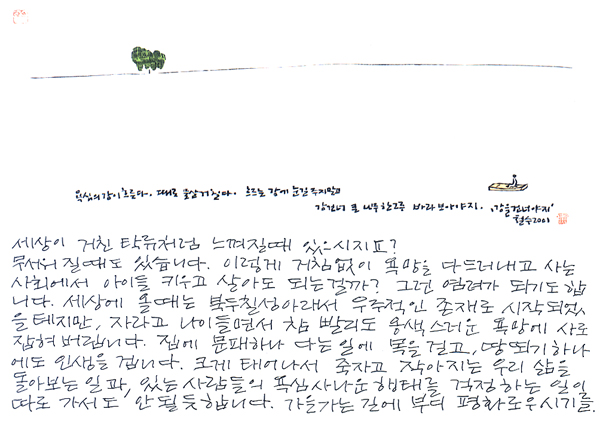 욕심의 강이 흐른다. 때로 물살 거칠다. 흐르는 강에 눈길 주지 말고
강 건너 큰 나무 한 그루 바라보아야지. '강을 건너야지'
철수 2001
세상이 거친 탁류처럼 느껴질때 있으시지요?
무서워 질때도 있습니다. 이렇게 거침없이 욕망을 다 드러내고 사는
사회에서 아이들 키우고 살아도 되는걸까? 그런 염려가 되기도 합
니다. 세상에 올때는 북두칠성아래서 우주적인 존재로 시작되었
을테지만, 자라고 나이들면서 참 빨리도 옹색스러운 욕망에 사로
잡혀버립니다. 집에 분패하나 다는일에 목을 걸고, 땅뙈기 하나
에도 인생을 겁니다. 크게 태어나서 죽자고 작아지는 우리 삶을
돌아보는 일과, 있는 사람들의 욕심사나운 행태를 걱정하는 일이
따로 가서도 안될 듯합니다. 가을가는 길에 부디 평화로우시기를.